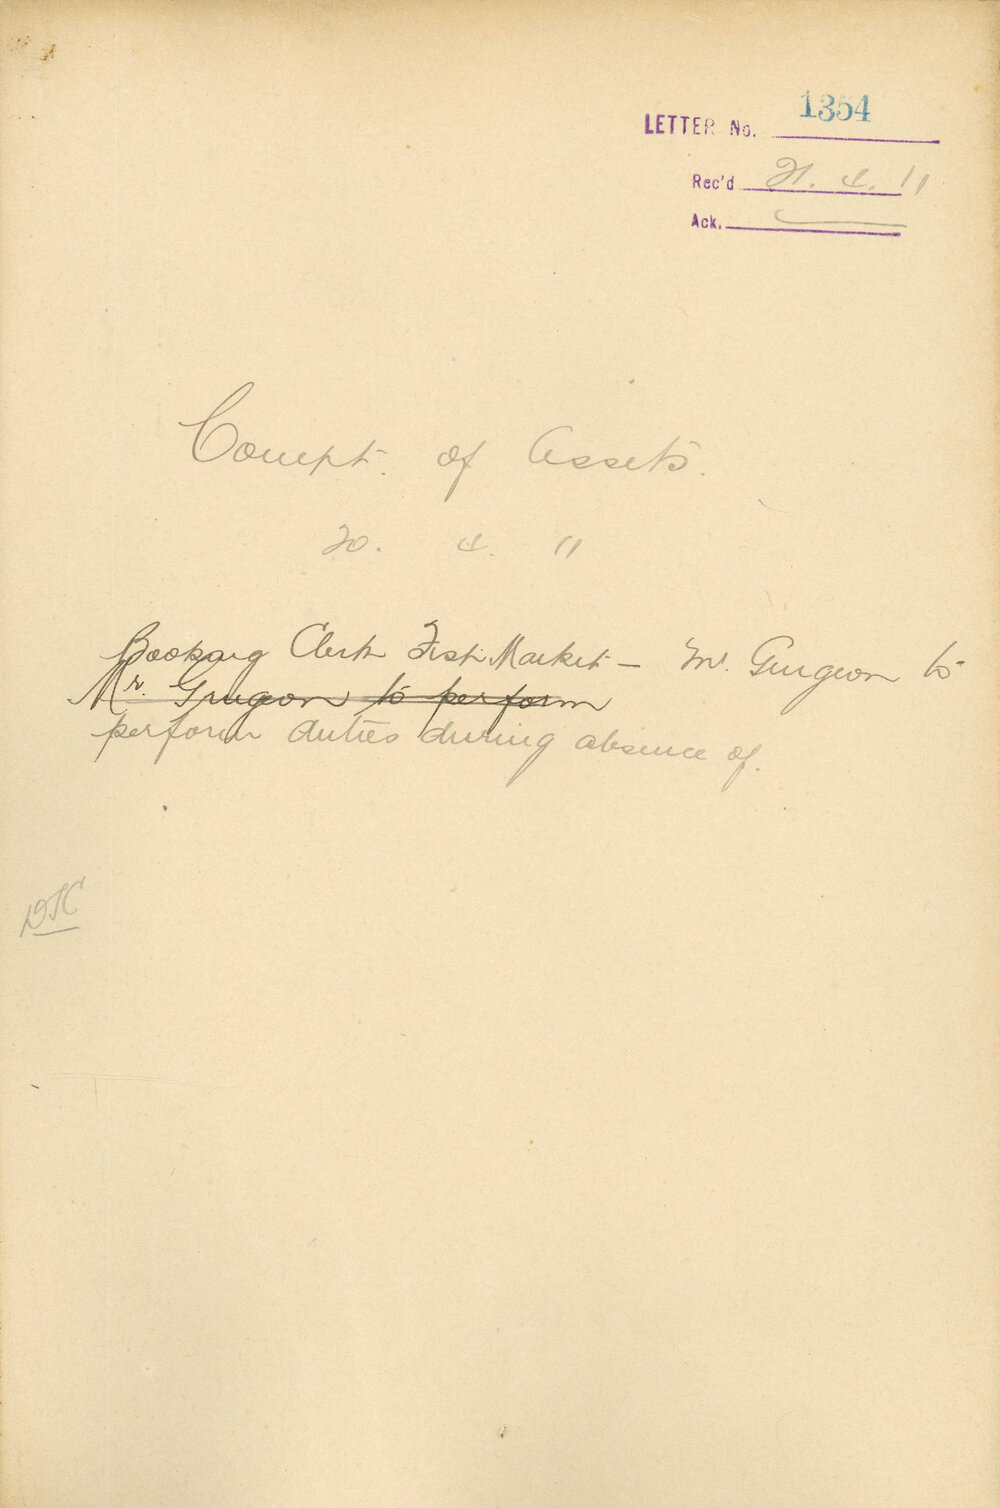 LETTER No. 1354
Rec'd 21. 4. 11
Ack.
Compt. of Assets.
20. 4. 11
Booking Clerk Fish Market – Mr. Gurgeon to
Mr. Grugeon to perform
perform duties during absence of.
DTC